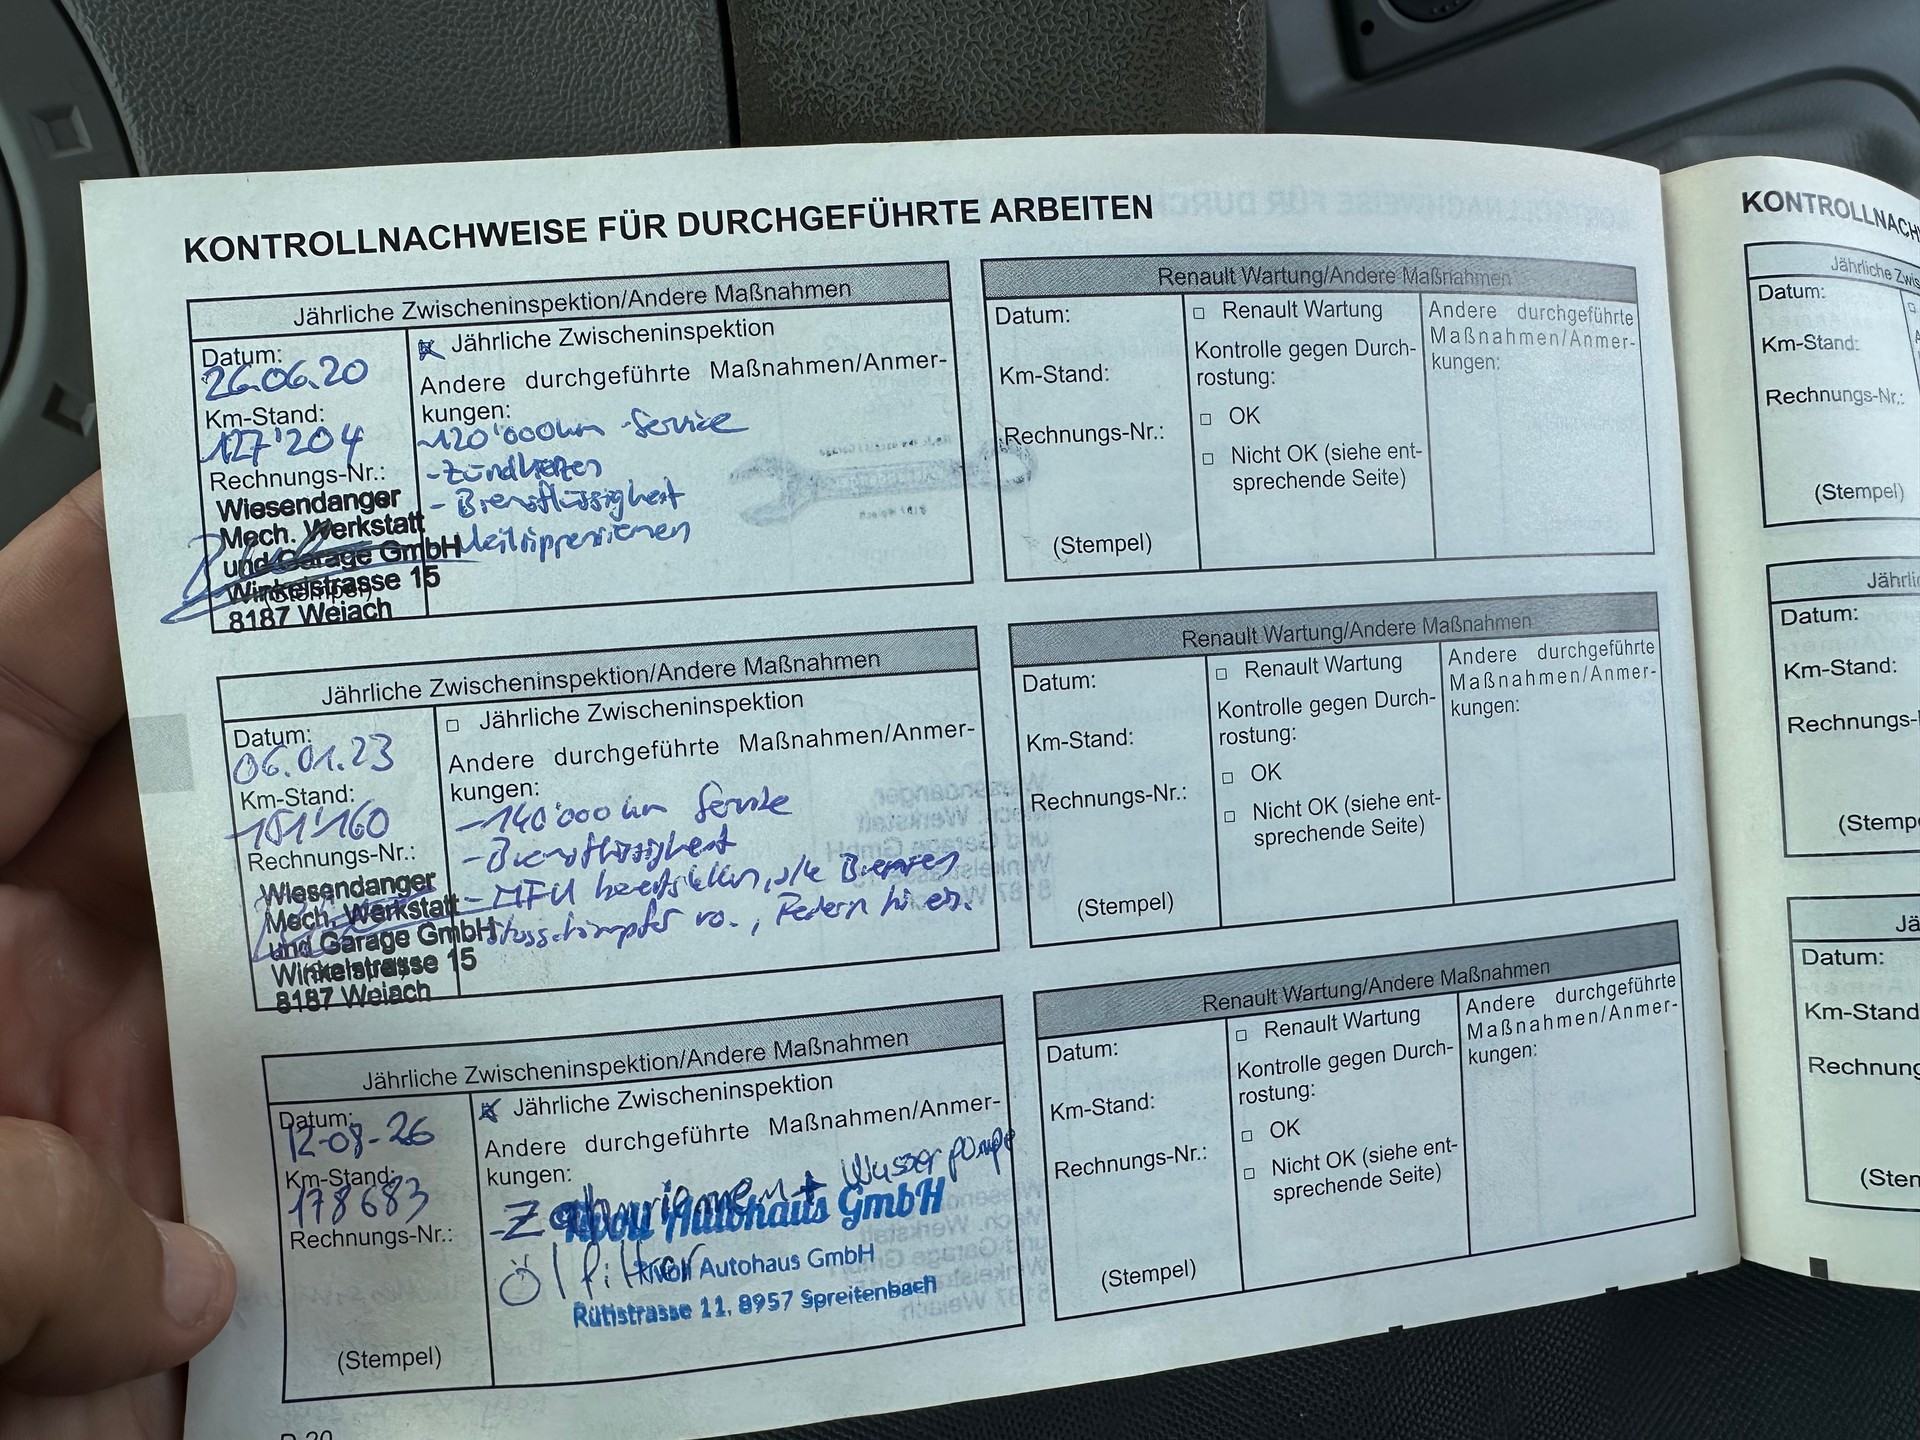 KONTROLLNACHWEISE FÜR DURCHGEFÜHRTE ARBEITEN
Jährliche Zwischeninspektion/Andere Maßnahmen
Datum:
26.06.20
Km-Stand:
127'204
Rechnungs-Nr.:
Wiesendanger
Mech. Werkstatt
und Garage GmbH
Winkelstrasse 15
8187 Weiach
Jährliche Zwischeninspektion
Andere durchgeführte Maßnahmen/Anmer-
kungen:
-120'000km -Service
-Zündkerzen
-Bremsflüssigkeit
Keilrippenriemen
Renault Wartung/Andere Maßnahmen
Datum:
Km-Stand:
Rechnungs-Nr.:
(Stempel)
Renault Wartung
Kontrolle gegen Durch-
rostung:
OK
Nicht OK (siehe ent-
sprechende Seite)
Andere durchgeführte
Maßnahmen/Anmer-
kungen:
Jährliche Zwischeninspektion/Andere Maßnahmen
Datum:
06.01.23
Km-Stand:
151'160
Rechnungs-Nr.:
Wiesendanger
Mech. Werkstatt
und Garage GmbH
Winkelstrasse 15
8187 Weiach
Jährliche Zwischeninspektion
Andere durchgeführte Maßnahmen/Anmer-
kungen:
-140'000 km Service
-Bremsflüssigkeit
-MFU Bremsen
Stossdämpfer vo., Federn hi
Renault Wartung/Andere Maßnahmen
Datum:
Km-Stand:
Rechnungs-Nr.:
(Stempel)
Renault Wartung
Kontrolle gegen Durch-
rostung:
OK
Nicht OK (siehe ent-
sprechende Seite)
Andere durchgeführte
Maßnahmen/Anmer-
kungen:
Jährliche Zwischeninspektion/Andere Maßnahmen
Datum:
12-08-26
Km-Stand:
178683
Rechnungs-Nr.:
(Stempel)
Jährliche Zwischeninspektion
Andere durchgeführte Maßnahmen/Anmer-
kungen:
-Zahnriemen + Wasserpumpe
Autohaus GmbH
Ölfilter
Autohaus GmbH
Rütistrasse 11, 8957 Spreitenbach
Renault Wartung/Andere Maßnahmen
Datum:
Km-Stand:
Rechnungs-Nr.:
(Stempel)
Renault Wartung
Kontrolle gegen Durch-
rostung:
OK
Nicht OK (siehe ent-
sprechende Seite)
Andere durchgeführte
Maßnahmen/Anmer-
kungen:
KONTROLLNACH
Jährliche Zwis
Datum:
Km-Stand:
Rechnungs-Nr.:
(Stempel)
Jährli
Datum:
Km-Stand:
Rechnungs-
(Stemp
Jä
Datum:
Km-Stand
Rechnung
(Sten